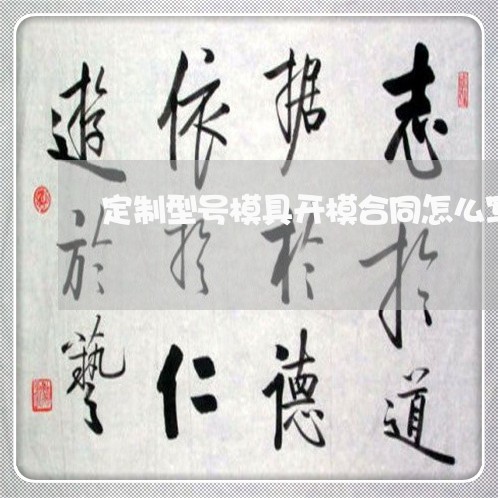 志於道
据於德
依於仁
遊於藝
定制型号模具开模合同怎么